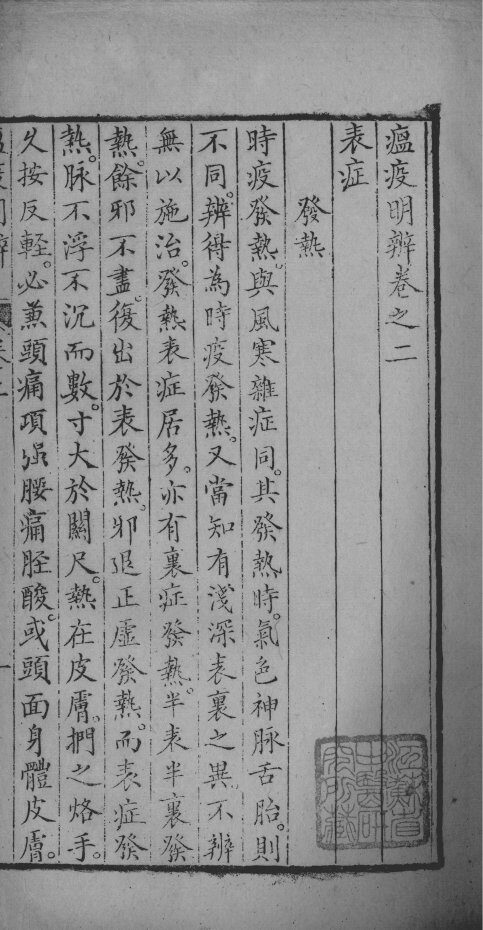 瘟疫明辨卷之二
表症
發熱
時疫發熱。與風寒雜症同。其發熱時。氣色神脉舌胎。則
不同。辨得為時疫發熱。又當知有淺深表裏之異。不辨
無以施治。發熱表症居多。亦有裏症發熱。半表半裏發
熱。餘邪不盡。復出於表發熱。邪退正虛發熱。而表症發
熱。脉不浮不沉而數。寸大於關尺。熱在皮膚。捫之烙手。
久按反輕。必兼頭痛項强腰痛脛酸。或頭面身體皮膚。